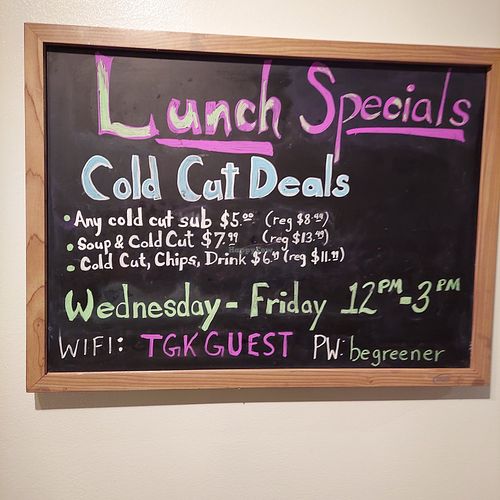 Lunch Specials
Cold Cut Deals
• Any cold cut sub $5.00 (reg $8.49)
• Soup & Cold Cut $7.99 (reg $13.49)
• Cold Cut, Chips, Drink $6.99 (reg $11.99)
Wednesday - Friday 12PM - 3PM
WIFI: TGK GUEST PW: begreener